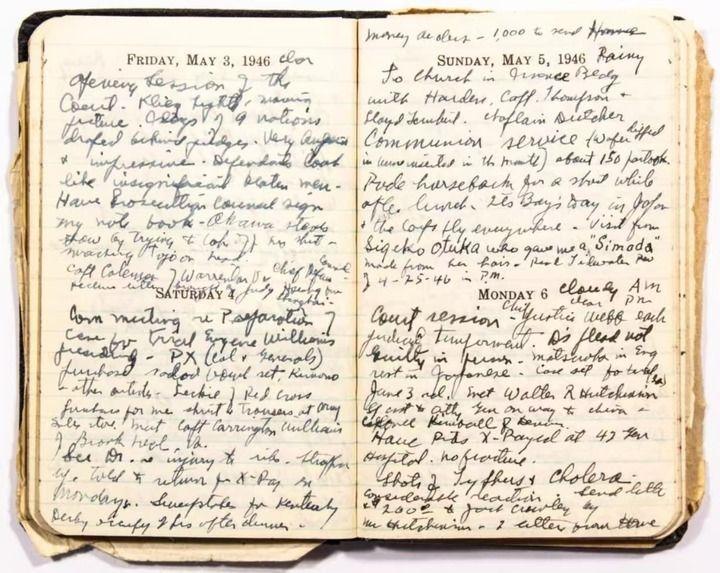 FRIDAY, MAY 3, 1946 clor
Opening Session of the
Court. Klieg lights, moving
picture. Flags of 9 nations
draped behind judges. Very
& impressive. Defendants look
like insignificant beaten men -
Have Prosecution Counsel sign
my note book - Okawa steals
show by trying to take off his shirt -
smacking Tojo on head
Capt Coleman of Warrenton Va Chief Defense Counsel
SATURDAY 4
Com meeting re Preparation of
Case for trial Eugene Williams
presiding - PX (Col & Generals)
purchase salad bowl set, Kimono
& other articles - Leckie of Red Cross
purchase for me shirt & trousers at Army
Sales store. Met Capt Carrington Williams
of Brook Neal, Va.
See Dr. re injury to ribs. Strapped
up. Told to return for X-Ray on
Monday. Sweepstakes for Kentucky
Derby after dinner -
money orders - 1,000 to send Home
SUNDAY, MAY 5, 1946 Rainy
To Church in Finance Bldg
with Harden, Capt. Thompson &
Lloyd. Chaplain Dutcher
Communion service (wafer dipped
in wine inserted in the mouth) about 150 partook.
Rode horseback for a short while
after lunch. Its Boys Day in Japan
& the Carp fly everywhere - Visit from
Sigeko Otuka who gave me a "Simada"
made from her hair - Read Tidewater Rev
of 4-25-46 in P.M.
MONDAY 6 cloudy AM
clear P.M.
Court session - Chief Justice Webb each
Ds plead not
guilty in person - Matsuoka in Eng
rest in Japanese - Case set for trial
June 3rd. Met Walter R Hutchinson
Asst to Atty Gen on way to China -
Have Ribs X-Rayed at 42 Gen
Hospital. no fracture.
Shots of Typhus & Cholera -
considerable reaction. Send letter
& $200 to Crowley by
Mr Hutchinson - 2 letters from Home